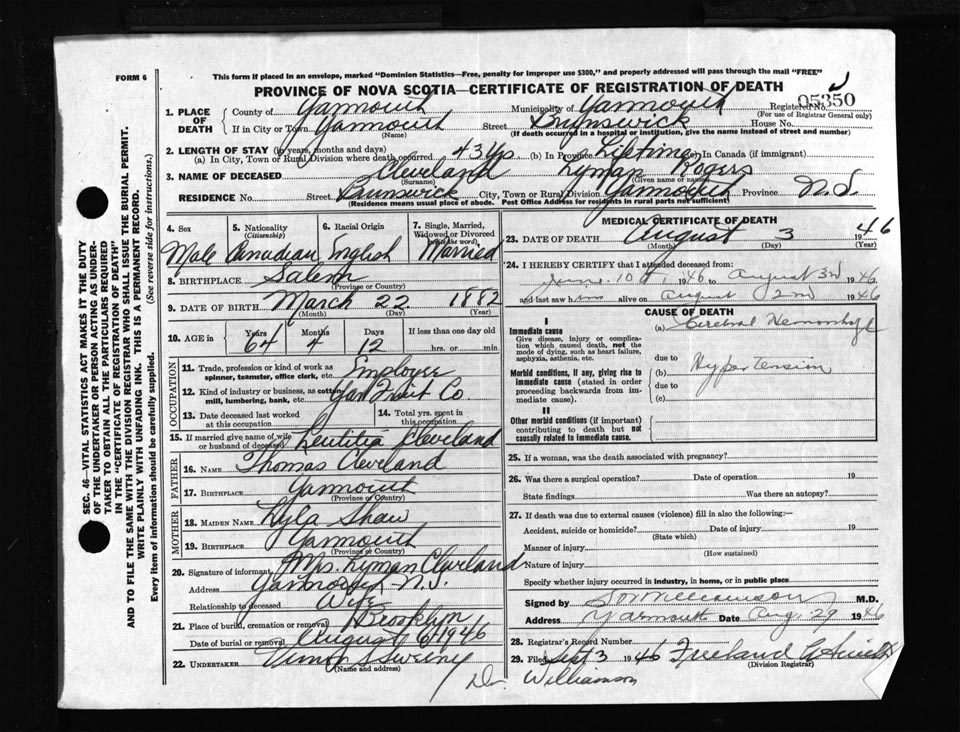 FORM 6
This form if placed in an envelope, marked "Dominion Statistics—Free, penalty for improper use $300," and properly addressed will pass through the mail "FREE"
PROVINCE OF NOVA SCOTIA—CERTIFICATE OF REGISTRATION OF DEATH
05350
1. PLACE OF DEATH
County of Yarmouth Municipality of Yarmouth Registered No.
(For use of Registrar General only)
If in City or Town Yarmouth Street Brunswick House No.
(Name) (If death occurred in a hospital or institution, give the name instead of street and number)
2. LENGTH OF STAY (in years, months and days)
(a) In City, Town or Rural Division where death occurred 43 yrs (b) In Province Lifetime (c) In Canada (if immigrant)
3. NAME OF DECEASED Cleveland Lyman Rogers
(Surname) (Given name or names)
RESIDENCE No. Street Brunswick City, Town or Rural Division Yarmouth Province N.S.
(Residence means usual place of abode. Post Office Address for residents in rural parts not sufficient)
4. Sex
Male
5. Nationality
(Citizenship)
Canadian
6. Racial Origin
English
7. Single, Married, Widowed or Divorced
(write the word)
Married
8. BIRTHPLACE Salem
(Province or Country)
9. DATE OF BIRTH March 22 1882
(Month) (Day) (Year)
10. AGE in
Years Months Days If less than one day old
64 4 12 hrs. or min.
OCCUPATION
11. Trade, profession or kind of work as spinner, teamster, office clerk, etc. Employee
12. Kind of industry or business, as cotton mill, lumbering, bank, etc. Yar Fruit Co.
13. Date deceased last worked at this occupation
14. Total yrs. spent in this occupation
15. If married give name of wife or husband of deceased Leutitia Cleveland
FATHER
16. NAME Thomas Cleveland
17. BIRTHPLACE Yarmouth
(Province or Country)
MOTHER
18. MAIDEN NAME Lyla Shaw
19. BIRTHPLACE Yarmouth
(Province or Country)
20. Signature of informant Mrs. Lyman Cleveland
Address Yarmouth N.S.
Relationship to deceased Wife
21. Place of burial, cremation or removal Brooklyn
Date of burial or removal August 6 1946
22. UNDERTAKER Vernon S Sweeny
(Name and address)
MEDICAL CERTIFICATE OF DEATH
23. DATE OF DEATH August 3 1946
(Month) (Day) (Year)
24. I HEREBY CERTIFY that I attended deceased from:
June 10 1946 to August 3rd 1946
and last saw him alive on August 2nd 1946
CAUSE OF DEATH
I
Immediate cause
Give disease, injury or complication which caused death, not the mode of dying, such as heart failure, asphyxia, asthenia, etc.
(a) Cerebral Hemorrhage
due to
Morbid conditions, if any, giving rise to immediate cause (stated in order proceeding backwards from immediate cause).
(b) Hypertension
due to
(c)
II
Other morbid conditions (if important) contributing to death but not causally related to immediate cause.
25. If a woman, was the death associated with pregnancy?
26. Was there a surgical operation? Date of operation 19
State findings Was there an autopsy?
27. If death was due to external causes (violence) fill in also the following:—
Accident, suicide or homicide? Date of injury 19
(State which)
Manner of injury
(How sustained)
Nature of injury
Specify whether injury occurred in industry, in home, or in public place
Signed by Williamson M.D.
Address Yarmouth Date Aug. 29 1946
28. Registrar's Record Number
29. Filed Sept 3 1946 Freeland
(Division Registrar)
Dr. Williamson
SEC. 46—VITAL STATISTICS ACT MAKES IT THE DUTY OF THE UNDERTAKER OR PERSON ACTING AS UNDERTAKER TO OBTAIN ALL THE PARTICULARS REQUIRED IN THE "CERTIFICATE OF REGISTRATION OF DEATH"
AND TO FILE THE SAME WITH THE DIVISION REGISTRAR WHO SHALL ISSUE THE BURIAL PERMIT.
WRITE PLAINLY WITH UNFADING INK. THIS IS A PERMANENT RECORD.
Every item of information should be carefully supplied. (See reverse side for instructions.)